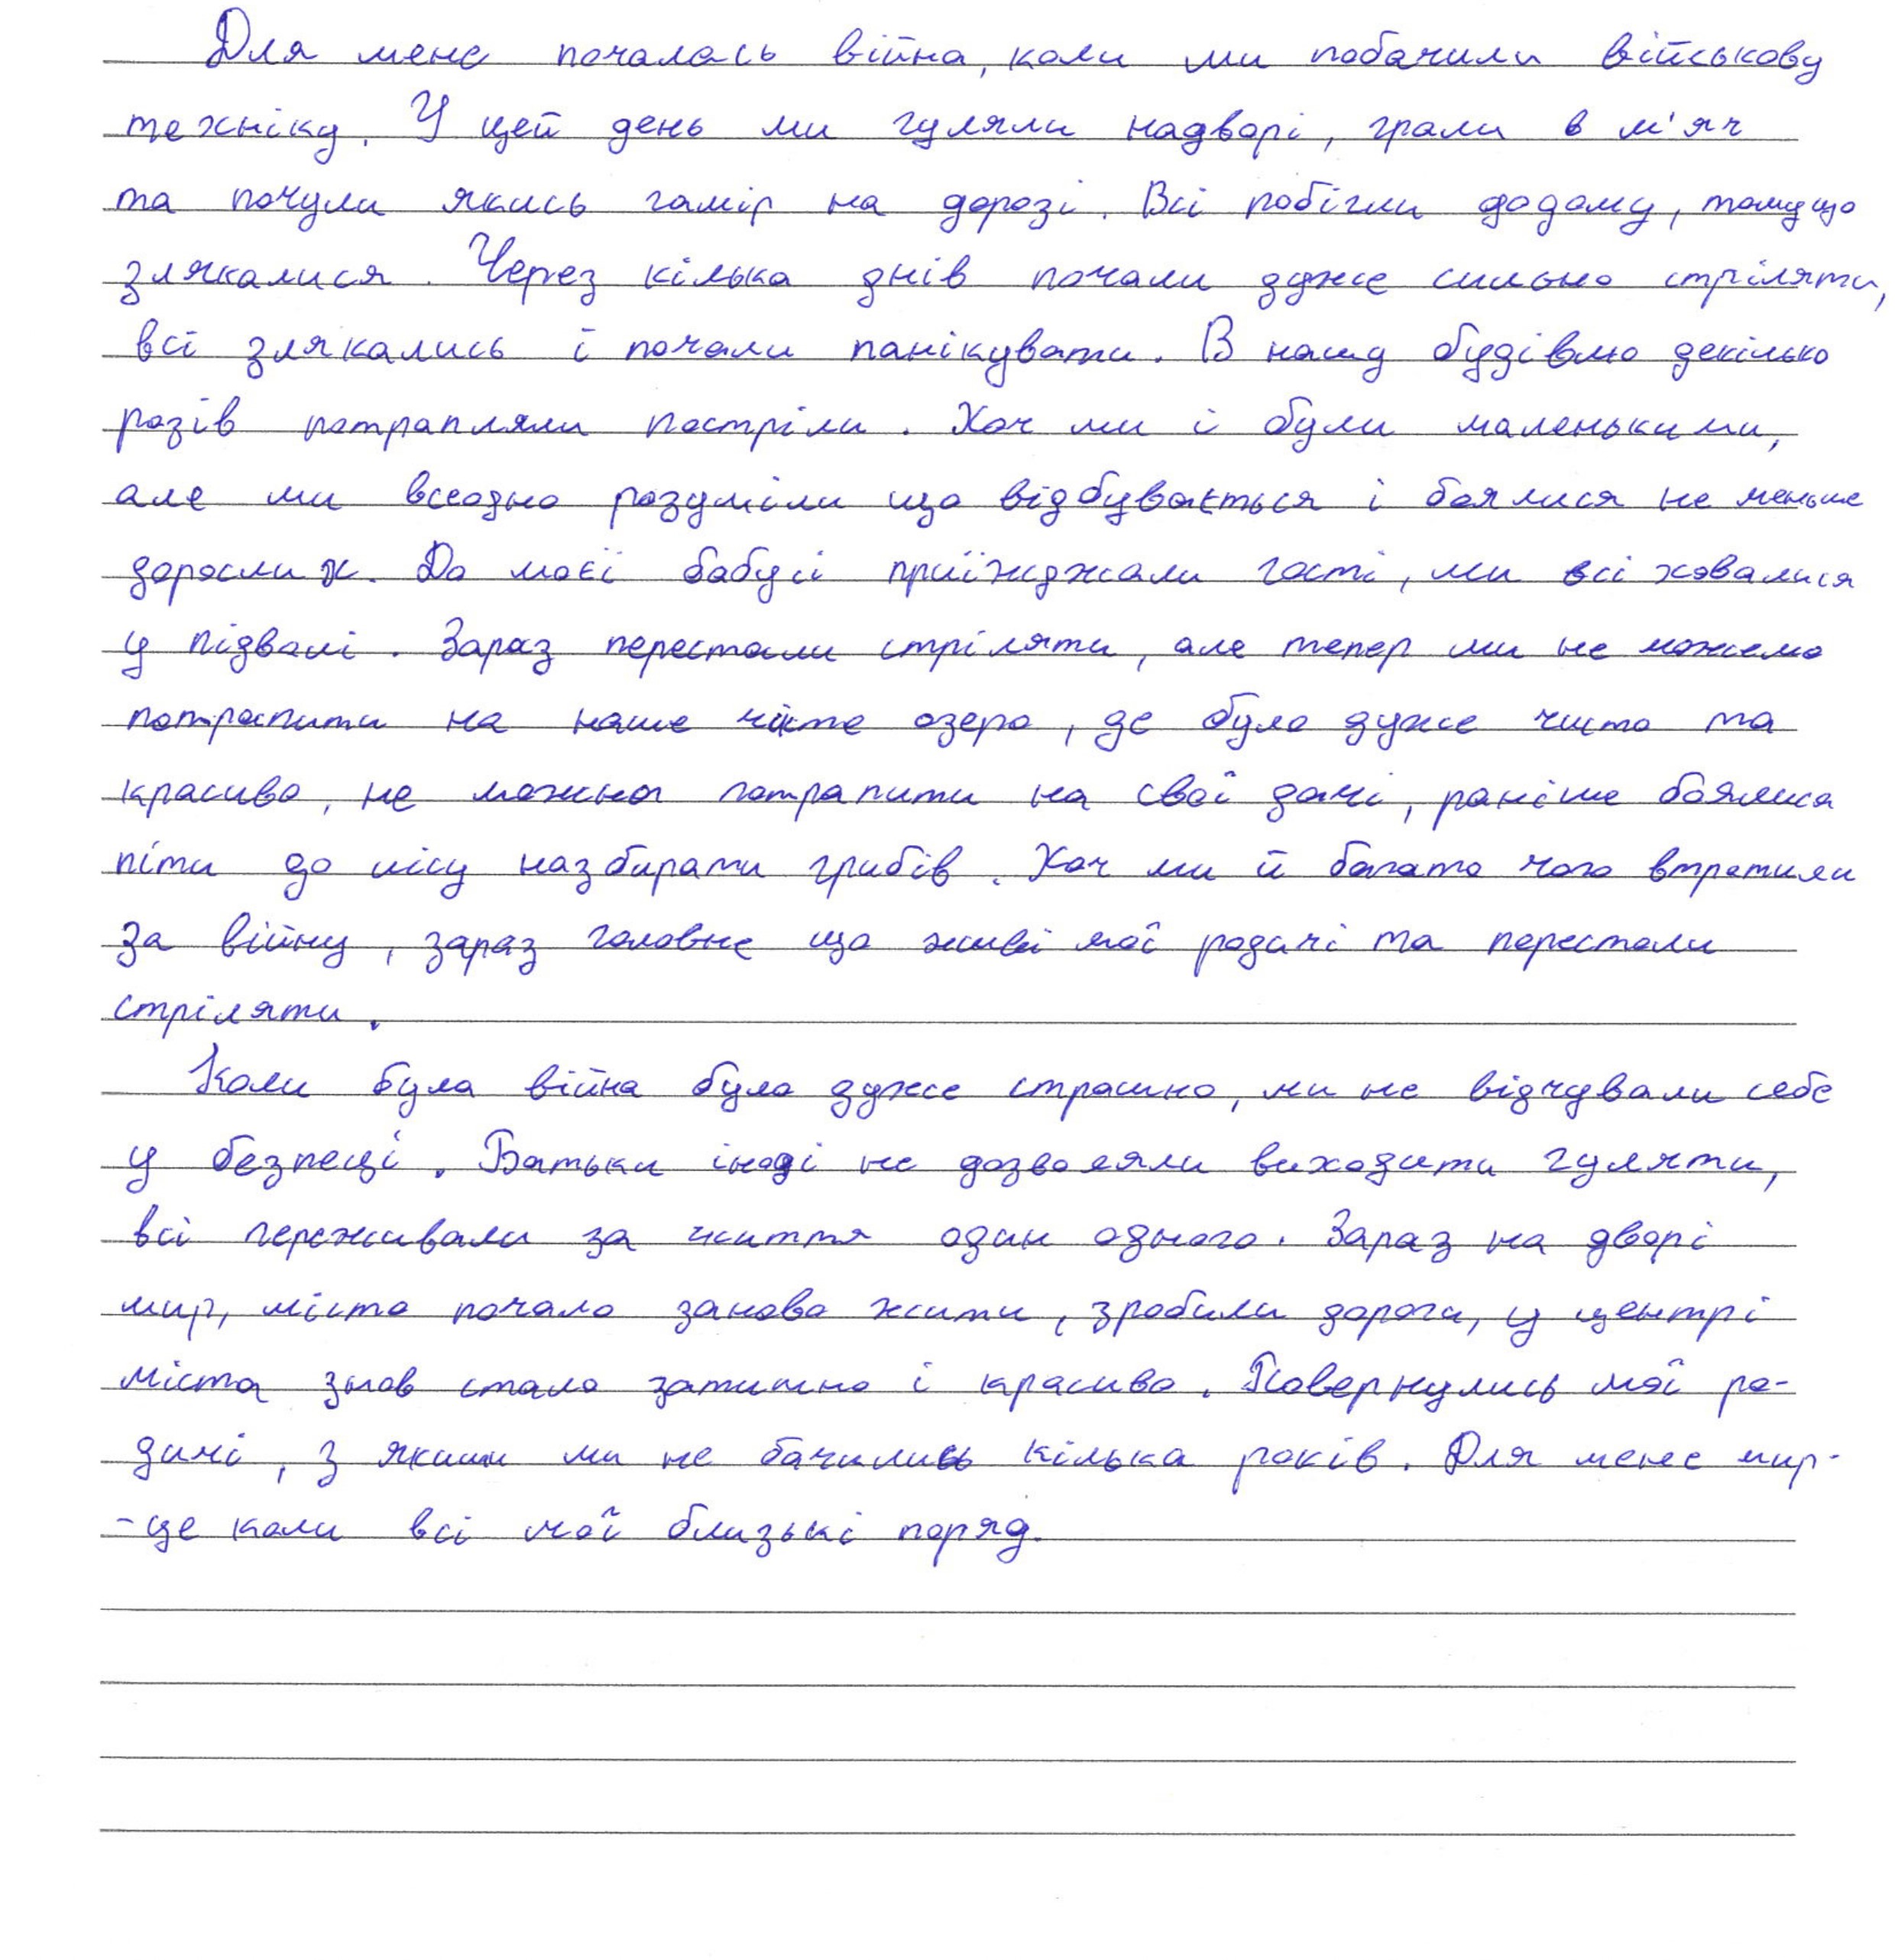 Для мене почалась війна, коли ми побачили військову
техніку. У цей день ми гуляли надворі, грали в м'яч
та почули якись гамір на дорозі. Всі побігли додому, тому що
злякалися. Через кілька днів почали дуже сильно стріляти,
всі злякались і почали панікувати. В нашу будівлю декілька
разів потрапляли постріли. Хоч ми і були маленькими,
але ми всеодно розуміли що відбувається і боялися не меньше
дорослих. До моєї бабусі приїжджали гості, ми всі ховалися
у підвалі. Зараз перестали стріляти, але тепер ми не можемо
потрапити на наше чисте озеро, де було дуже чисто та
красиво, не можна потрапити на свої дачі, раніше боялися
піти до лісу назбирати грибів. Хоч ми й багато чого втратили
за війну, зараз головне що живі мої родичі та перестали
стріляти.
Коли була війна було дуже страшно, ми не відчували себе
у безпеці. Батьки іноді не дозволяли виходити гуляти,
всі переживали за життя один одного. Зараз на дворі
мир, місто почало заново жити, зробили дороги, у центрі
міста знов стало затишно і красиво. Повернулись мої ро-
дичі, з якими ми не бачились кілька років. Для мене мир-
-це коли всі мої близькі поряд.